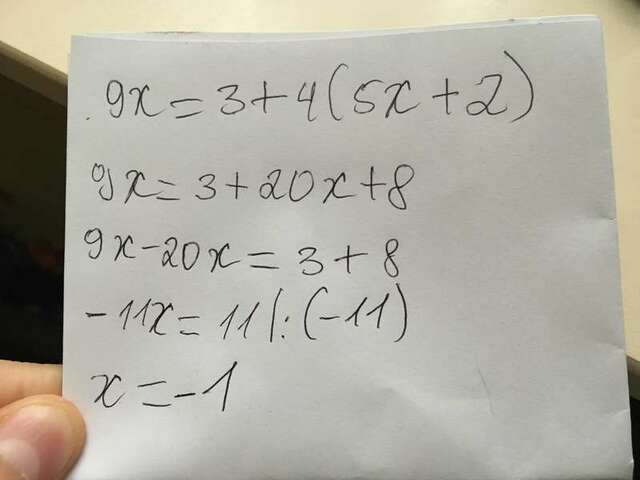 9x = 3 + 4(5x + 2)
9x = 3 + 20x + 8
9x - 20x = 3 + 8
- 11x = 11 |: (-11)
x = - 1